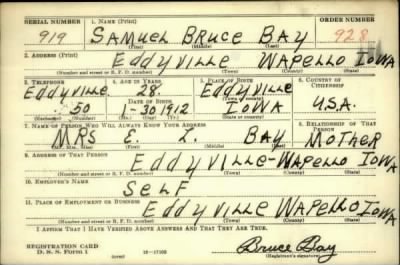 SERIAL NUMBER 1. NAME (Print) ORDER NUMBER
919 SAMUEL BRUCE BAY 928
(First) (Middle) (Last)
2. ADDRESS (Print)
Eddyville WAPELLO IOWA
(Number and street or R. F. D. number) (Town) (County) (State)
3. TELEPHONE 4. AGE IN YEARS 5. PLACE OF BIRTH 6. COUNTRY OF CITIZENSHIP
Eddyville 28 Eddyville
DATE OF BIRTH (Town or county)
50 1-30 1912 IOWA U.S.A.
7. NAME OF PERSON WHO WILL ALWAYS KNOW YOUR ADDRESS 8. RELATIONSHIP OF THAT PERSON
MRS E. I. BAY MOTHER
(Mr., Mrs., Miss) (First) (Middle) (Last)
9. ADDRESS OF THAT PERSON
Eddyville-WAPELLO IOWA
(Number and street or R. F. D. number) (Town) (County) (State)
10. EMPLOYER'S NAME
SELF
11. PLACE OF EMPLOYMENT OR BUSINESS
Eddyville WAPELLO IOWA
(Number and street or R. F. D. number) (Town) (County) (State)
I AFFIRM THAT I HAVE VERIFIED ABOVE ANSWERS AND THAT THEY ARE TRUE.
REGISTRATION CARD
D. S. S. Form 1 (over) Bruce Bay
(Registrant's signature)